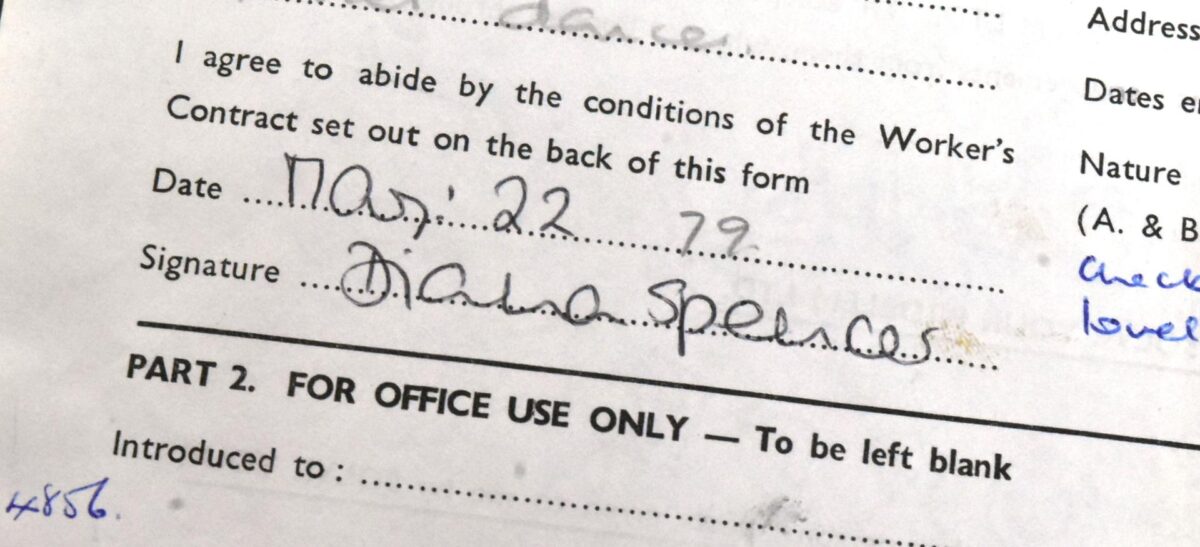 dancer.
I agree to abide by the conditions of the Worker's
Contract set out on the back of this form
Date May. 22 79.
Signature Diana Spencer
PART 2. FOR OFFICE USE ONLY — To be left blank
Introduced to :
4856.
Address
Dates
Nature
(A. & B
check